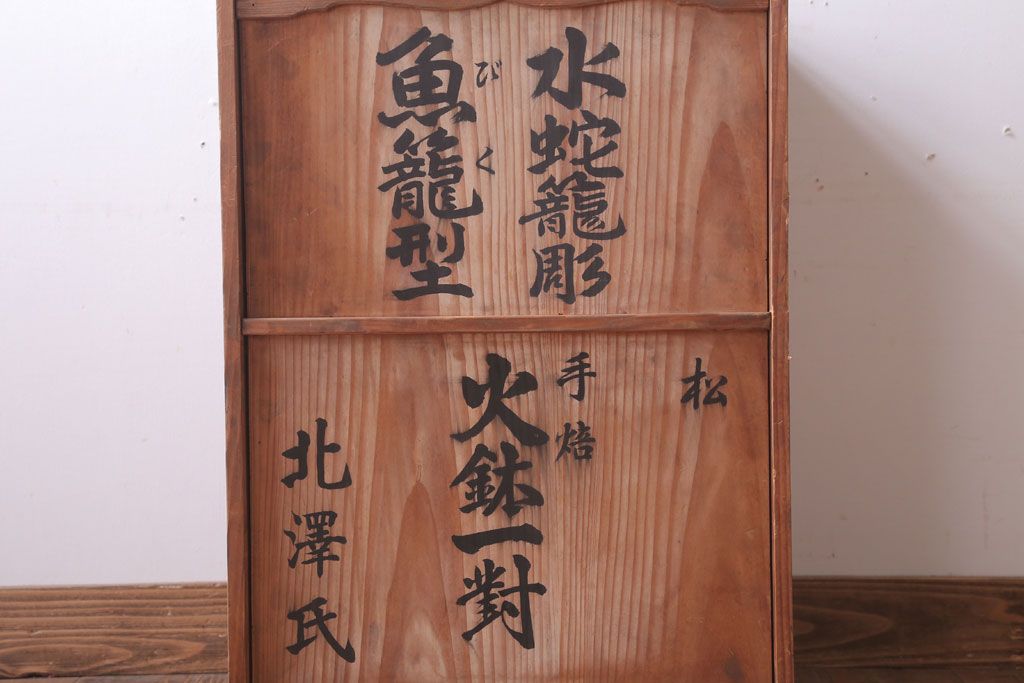 水蛇籠彫
魚籠型
びく
松
手焙
火鉢一對
北澤氏